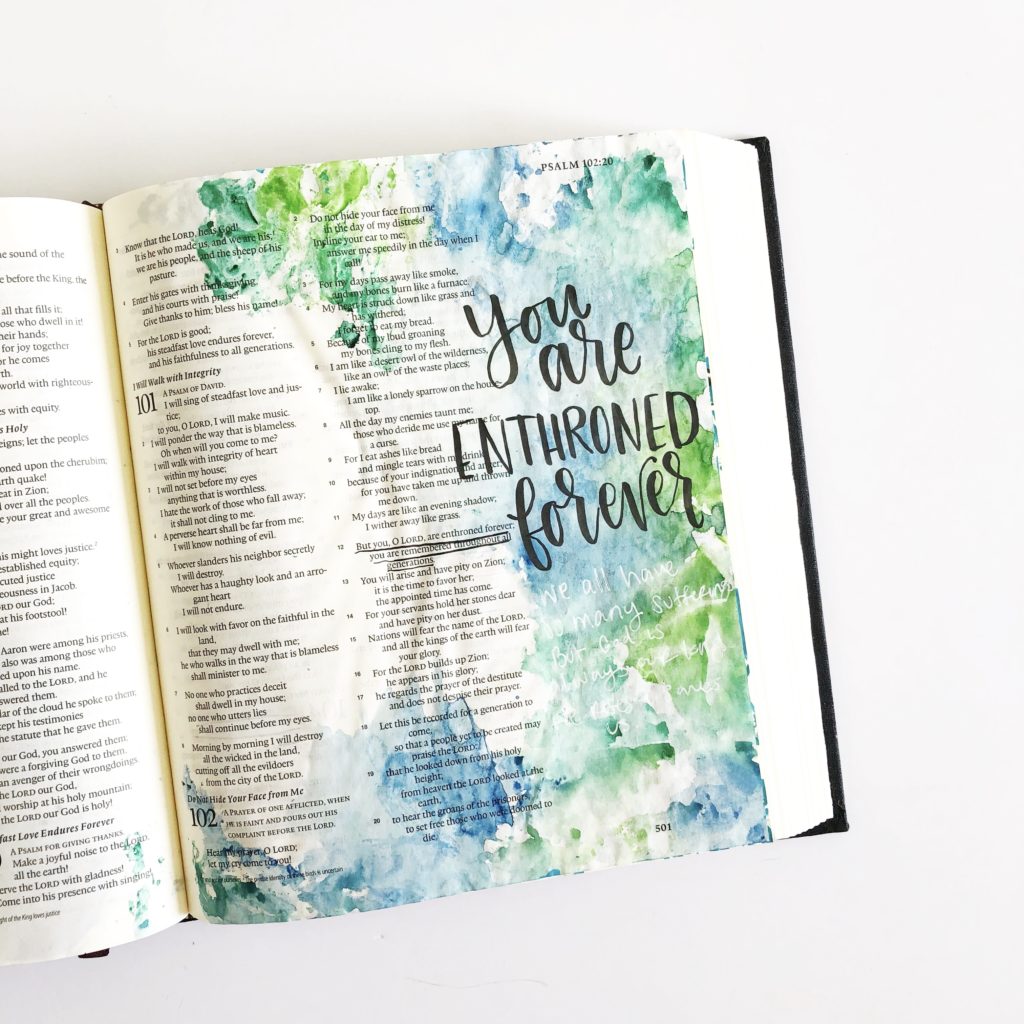 he sound of the
e before the King, the
all that fills it;
ose who dwell in it!
heir hands;
for joy together
or he comes
rth.
world with righteous-
es with equity.
s Holy
eigns; let the peoples
oned upon the cherubim;
earth quake!
eat in Zion;
d over all the peoples.
e your great and awesome
his might loves justice.²
established equity;
cuted justice
eousness in Jacob.
ORD our God;
at his footstool!
e!
Aaron were among his priests,
also was among those who
ed upon his name.
alled to the LORD, and he
swered them.
lar of the cloud he spoke to them;
kept his testimonies
the statute that he gave them.
our God, you answered them;
were a forgiving God to them,
an avenger of their wrongdoings.
the LORD our God,
worship at his holy mountain;
the LORD our God is holy!
fast Love Endures Forever
A PSALM FOR GIVING THANKS.
Make a joyful noise to the LORD,
all the earth!
erve the LORD with gladness!
Come into his presence with singing!
ght of the King loves justice
PSALM 102:20
3 Know that the LORD, he is God!
It is he who made us, and we are his;
we are his people, and the sheep of his
pasture.
4 Enter his gates with thanksgiving,
and his courts with praise!
Give thanks to him; bless his name!
5 For the LORD is good;
his steadfast love endures forever,
and his faithfulness to all generations.
I Will Walk with Integrity
101 A PSALM OF DAVID.
I will sing of steadfast love and jus-
tice;
to you, O LORD, I will make music.
2 I will ponder the way that is blameless.
Oh when will you come to me?
I will walk with integrity of heart
within my house;
3 I will not set before my eyes
anything that is worthless.
I hate the work of those who fall away;
it shall not cling to me.
4 A perverse heart shall be far from me;
I will know nothing of evil.
5 Whoever slanders his neighbor secretly
I will destroy.
Whoever has a haughty look and an arro-
gant heart
I will not endure.
6 I will look with favor on the faithful in the
land,
that they may dwell with me;
he who walks in the way that is blameless
shall minister to me.
7 No one who practices deceit
shall dwell in my house;
no one who utters lies
shall continue before my eyes.
8 Morning by morning I will destroy
all the wicked in the land,
cutting off all the evildoers
from the city of the LORD.
Do Not Hide Your Face from Me
102 A PRAYER OF ONE AFFLICTED, WHEN
HE IS FAINT AND POURS OUT HIS
COMPLAINT BEFORE THE LORD.
Hear my prayer, O LORD;
let my cry come to you!
2 Do not hide your face from me
in the day of my distress!
Incline your ear to me;
answer me speedily in the day when I
call!
3 For my days pass away like smoke,
and my bones burn like a furnace.
My heart is struck down like grass and
has withered;
I forget to eat my bread.
5 Because of my loud groaning
my bones cling to my flesh.
6 I am like a desert owl of the wilderness,
like an owl of the waste places;
7 I lie awake;
I am like a lonely sparrow on the house-
top.
8 All the day my enemies taunt me;
those who deride me use my name for
a curse.
9 For I eat ashes like bread
and mingle tears with my drink,
10 because of your indignation and anger;
for you have taken me up and thrown
me down.
11 My days are like an evening shadow;
I wither away like grass.
12 But you, O LORD, are enthroned forever;
you are remembered throughout all
generations.
13 You will arise and have pity on Zion;
it is the time to favor her;
the appointed time has come.
14 For your servants hold her stones dear
and have pity on her dust.
15 Nations will fear the name of the LORD,
and all the kings of the earth will fear
your glory.
16 For the LORD builds up Zion;
he appears in his glory;
17 he regards the prayer of the destitute
and does not despise their prayer.
18 Let this be recorded for a generation to
come,
so that a people yet to be created may
praise the LORD:
19 that he looked down from his holy
height;
from heaven the LORD looked at the
earth,
20 to hear the groans of the prisoners,
to set free those who were doomed to
die,
501
you
are
ENTHRONED
forever
we all have
many sufferings
But God is
always our